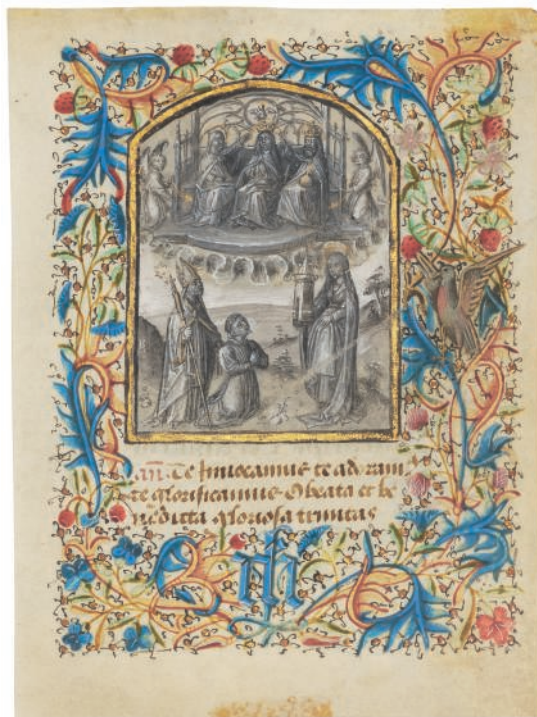 an. Te Invocamus te adoram
te glorificamus O beata et be
nedicta gloriosa trinitas